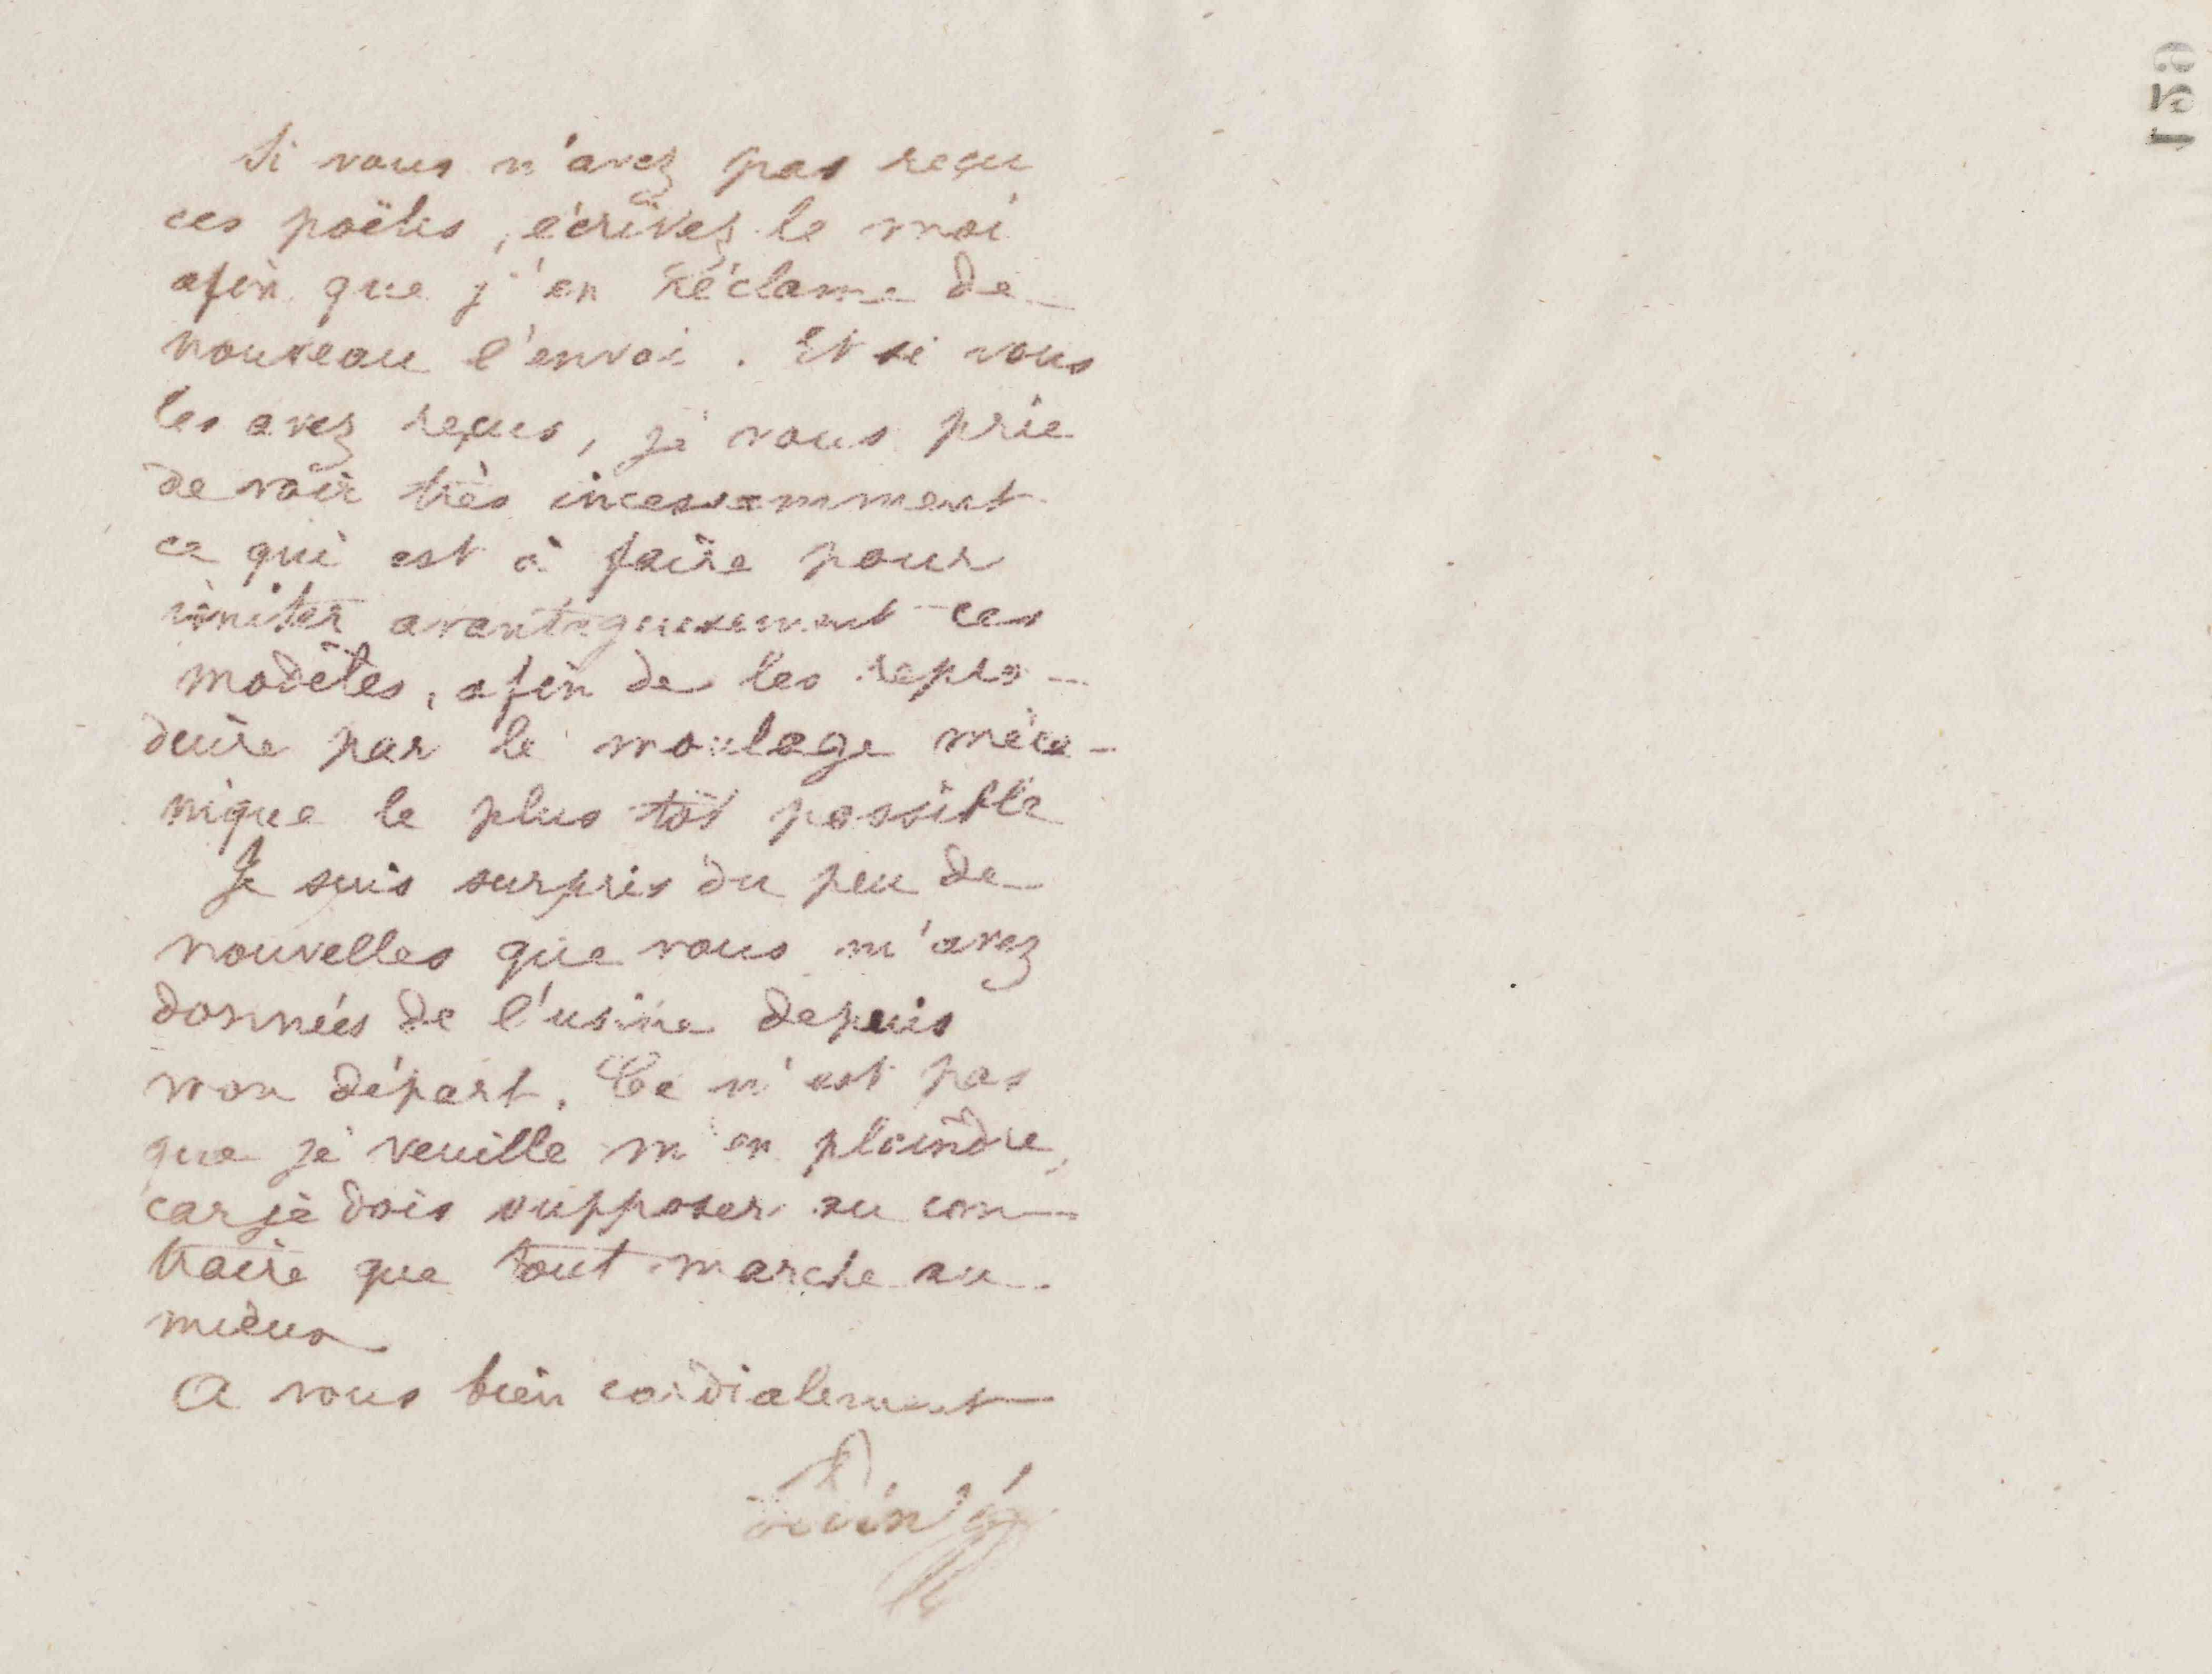 Si vous n'avez pas reçu
ces poëles, écrivez le moi
afin que j'en réclame de
nouveau l'envoi. Et si vous
les avez reçus, je vous prie
de voir très incessamment
ce qui est à faire pour
imiter avantageusement ces
modèles, afin de les repro-
duire par le moulage méca-
nique le plus tôt possible
Je suis surpris du peu de
nouvelles que vous m'avez
données de l'usine depuis
mon départ. Ce n'est pas
que je veuille m'en plaindre,
car je dois supposer au con-
traire que tout marche au
mieux
A vous bien cordialement
Godin
150